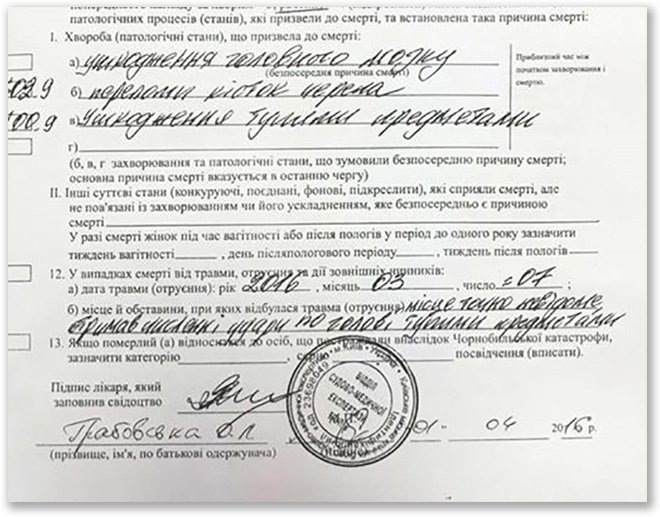 патологічних процесів (станів), які призвели до смерті, та встановлена така причина смерті:
I. Хвороба (патологічні стани), що призвела до смерті:
а) ушкодження головного мозку
(безпосередня причина смерті)
Приблизний час між
початком захворювання і
смертю.
б) переломи кісток черепа
в) Ушкодження тупими предметами
г)
(б, в, г захворювання та патологічні стани, що зумовили безпосередню причину смерті;
основна причина смерті вказується в останню чергу)
II. Інші суттєві стани (конкуруючі, поєднані, фонові, підкреслити), які сприяли смерті, але
не пов'язані із захворюванням чи його ускладненням, яке безпосередньо є причиною
смерті
У разі смерті жінок під час вагітності або після пологів у період до одного року зазначити
тиждень вагітності , день післяпологового періоду , тиждень після пологів
12. У випадках смерті від травми, отруєння та дії зовнішніх чинників:
а) дата травми (отруєння): рік 2016 , місяць 03 , число 07 ;
б) місце й обставини, при яких відбулася травма (отруєння) місце точно невідоме
отримав численні удари по голові тупими предметами
13. Якщо померлий (а) відноситься до осіб, що постраждали внаслідок Чорнобильської катастрофи,
зазначити категорію , посвідчення (вписати).
Підпис лікаря, який
заповнив свідоцтво
ВІДДІЛ
СУДОВО-МЕДИЧНОЇ
ЕКСПЕРТИЗИ
Грабовська О.Л 01 04 2016р
(прізвище, ім'я, по батькові одержувача)